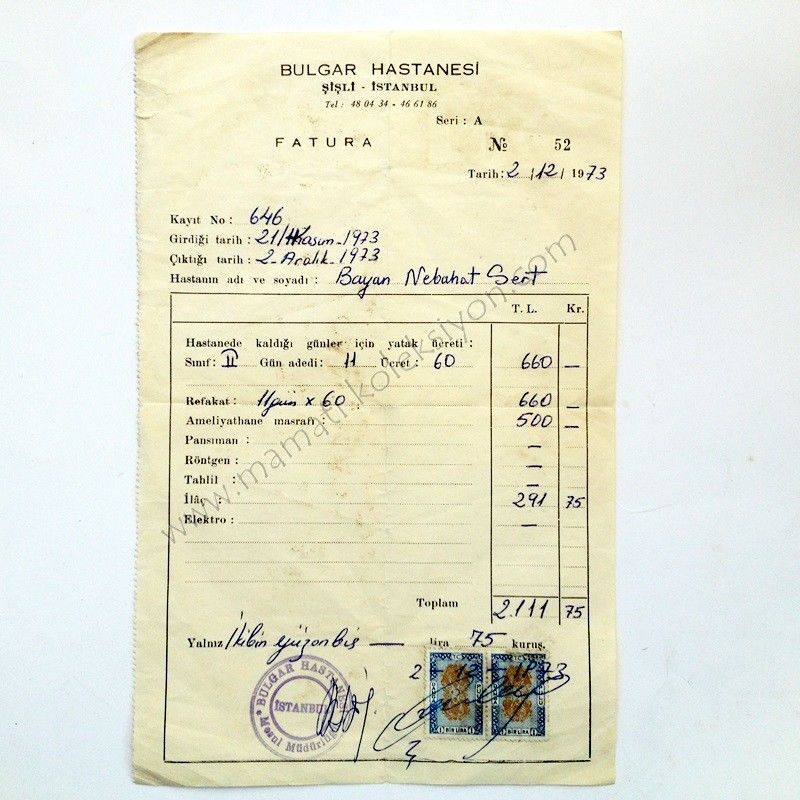 BULGAR HASTANESİ
ŞİŞLİ - İSTANBUL
Tel : 48 04 34 - 46 61 86
Seri : A
FATURA № 52
Tarih: 2 / 12 / 1973
Kayıt No : 646
Girdiği tarih : 21/ Kasım - 1973
Çıktığı tarih : 2 - Aralık - 1973
Hastanın adı ve soyadı : Bayan Nebahat Sert
T. L. Kr.
Hastanede kaldığı günler için yatak ücreti :
Sınıf : II Gün adedi : 11 Ücret : 60 660 —
Refakat : 11 gün x 60 660 —
Ameliyathane masrafı : 500 —
Pansıman : —
Röntgen : —
Tahlil : —
İlâç : 291 75
Elektro : —
Toplam 2.111 75
Yalnız İkibin yüzonbir — lira 75 kuruş.
BULGAR HASTANESİ
İSTANBUL
Mesul Müdürlüğü
BİR LİRA BİR LİRA
www.mamatikoleksiyon.com